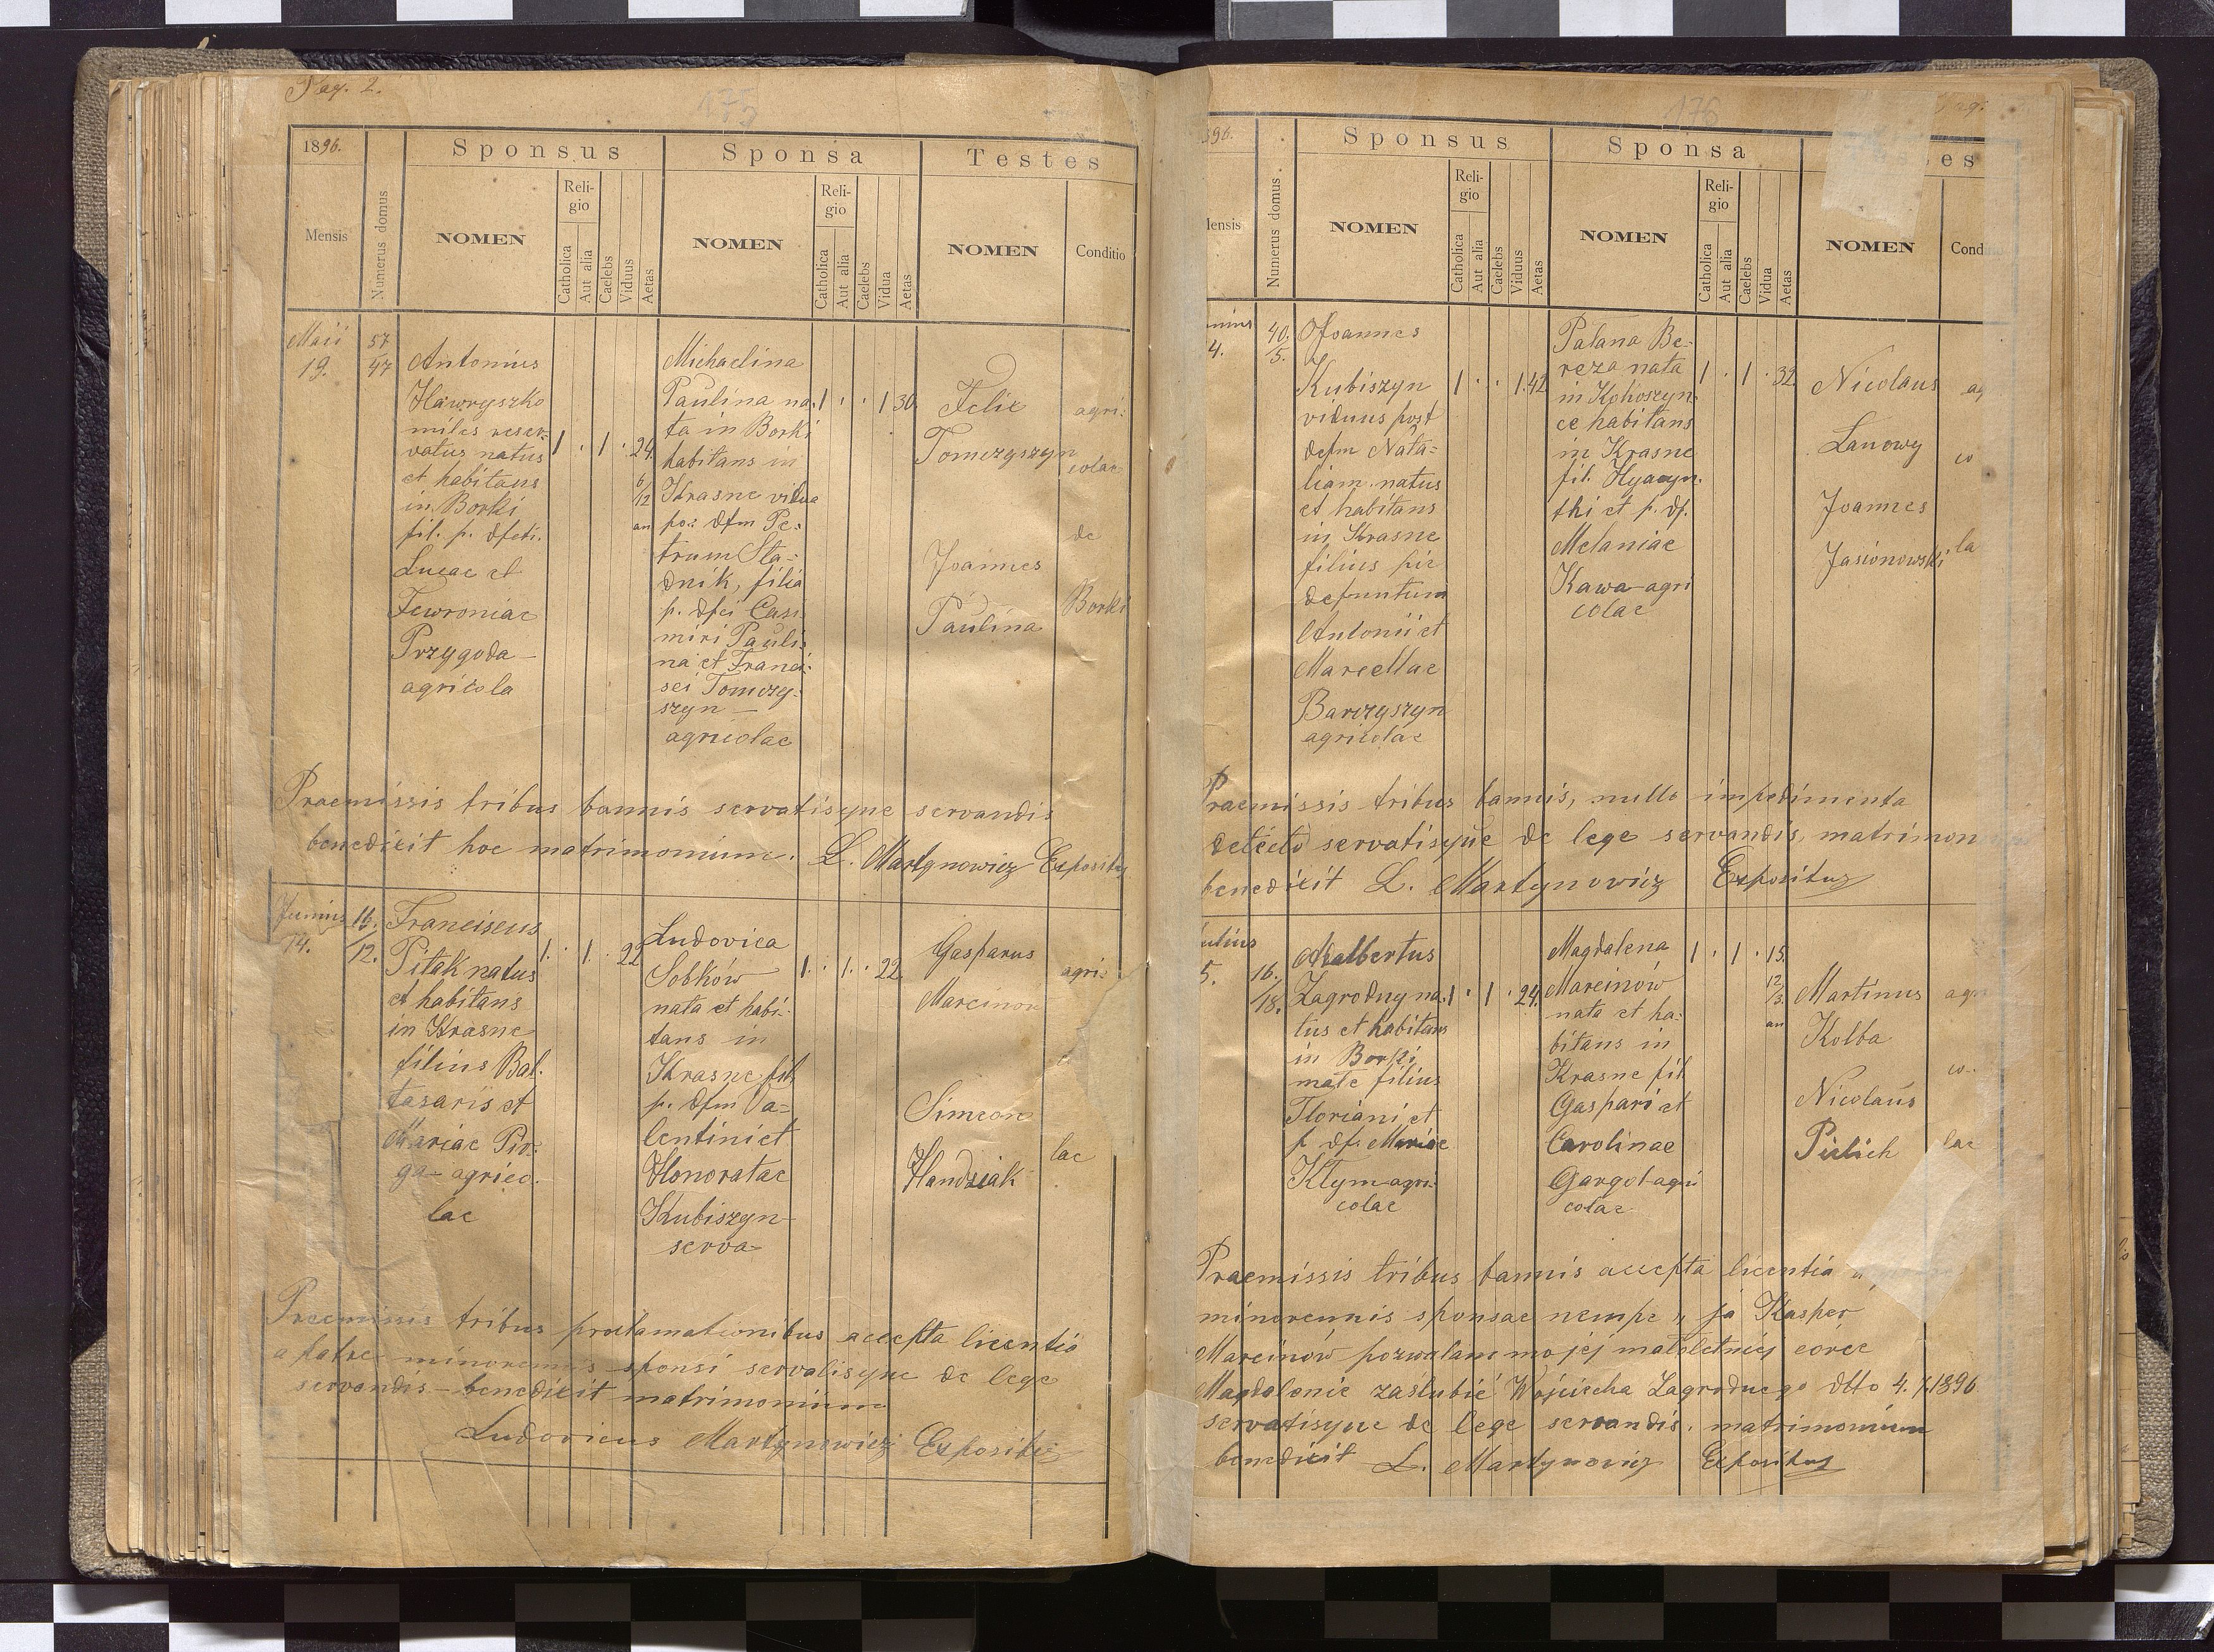 Pag. 2.
175
1896.
Sponsus
Sponsa
Testes
Mensis
Numerus domus
NOMEN
Religio
Catholica
Aut alia
Caelebs
Viduus
Aetas
NOMEN
Religio
Catholica
Aut alia
Caelebs
Vidua
Aetas
NOMEN
Conditio
Maii
19.
57
47
Antonius
Hawryszko
miles reser-
vatus natus
et habitans
in Borki
fil. p. dfcti.
Lucae et
Fewroniae
Przygoda —
agricola
1 . 1 . 24
6/12
an
Michaelina
Paulina na-
ta in Borki
habitans in
Krasne vidua
po: dfm Pe-
trum Sta-
dnik, filia
p. dfci Casi
miri Pauli-
na et Franci-
sci Tomczy-
szyn —
agricolae
1 . . 1 30.
Felix
Tomczyszyn
Joannes
Paulina
agri-
colae
de
Borki
Praemissis tribus bannis servatisque servandis
benedixit hoc matrimonium. L. Martynowicz Expositus
Junius
14.
16.
/12.
Franciscus
Pitak natus
et habitans
in Krasne
filius Bal-
tasaris et
Mariae Piro-
ga – agrico-
lae
1. . 1. . 22
Ludovica
Sobków
nata et habi-
tans in
Krasne fil.
p. dfm Va-
lentini et
Honoratae
Kubiszyn
serva
1. . 1. . 22.
Gasparus
Marcinow
Simeon
Handziak
agri-
co
lae
Praemissis tribus proclamationibus accepta licentia
a patre minorennis sponsi servatisque de lege
servandis – benedixit matrimonium
Ludovicus Martynowicz Expositus
176
Pag.
896.
Sponsus
Sponsa
es
Mensis
Numerus domus
NOMEN
Religio
Catholica
Aut alia
Caelebs
Viduus
Aetas
NOMEN
Religio
Catholica
Aut alia
Caelebs
Vidua
Aetas
NOMEN
Cond
unius
4.
40.
/5.
Joannes
Kubiszyn
viduus post
defm Nata-
liam natus
et habitans
in Krasne
filius pie
defuntum
Antonii et
Marcellae
Barczyszyn
agricolae
1 . . 1. 42
Palana Be-
reza nata
in Kokoszyn-
ce habitans
in Krasne
fil. Hyacyn-
thi et p. df.
Melaniae
Kawa – agri
colae
1 . 1 . 32
Nicolaus
Lanowy
Joannes
Jasionowski
ag
co
la
Praemissis tribus bannis, nullo impedimenta
detecto servatisque de lege servandis, matrimon
benedixit L. Martynowicz Expositus
ulius
5.
16.
/18.
Adalbertus
Zagrodny na-
tus et habitans
in Borki
małe filius
Floriani et
p. df. Mariae
Kłym agri-
colae
1 . 1 . 24.
Magdalena
Marcinów
nata et ha-
bitans in
Krasne fil.
Gaspari et
Carolinae
Gargol agri
colae
1 . 1 . 15.
12/3.
an
Martinus
Kolba
Nicolaus
Pielich
agri
co-
lae
Praemissis tribus bannis accepta licentia a
minorennis sponsae nempe „ja Kasper
Marcinów pozwalam mojej małoletniej córce
Magdalenie zaślubić Wojciecha Zagrodnego dtto 4. /1896
servatisque de lege servandis, matrimonium
benedixit L. Martynowicz Expositus